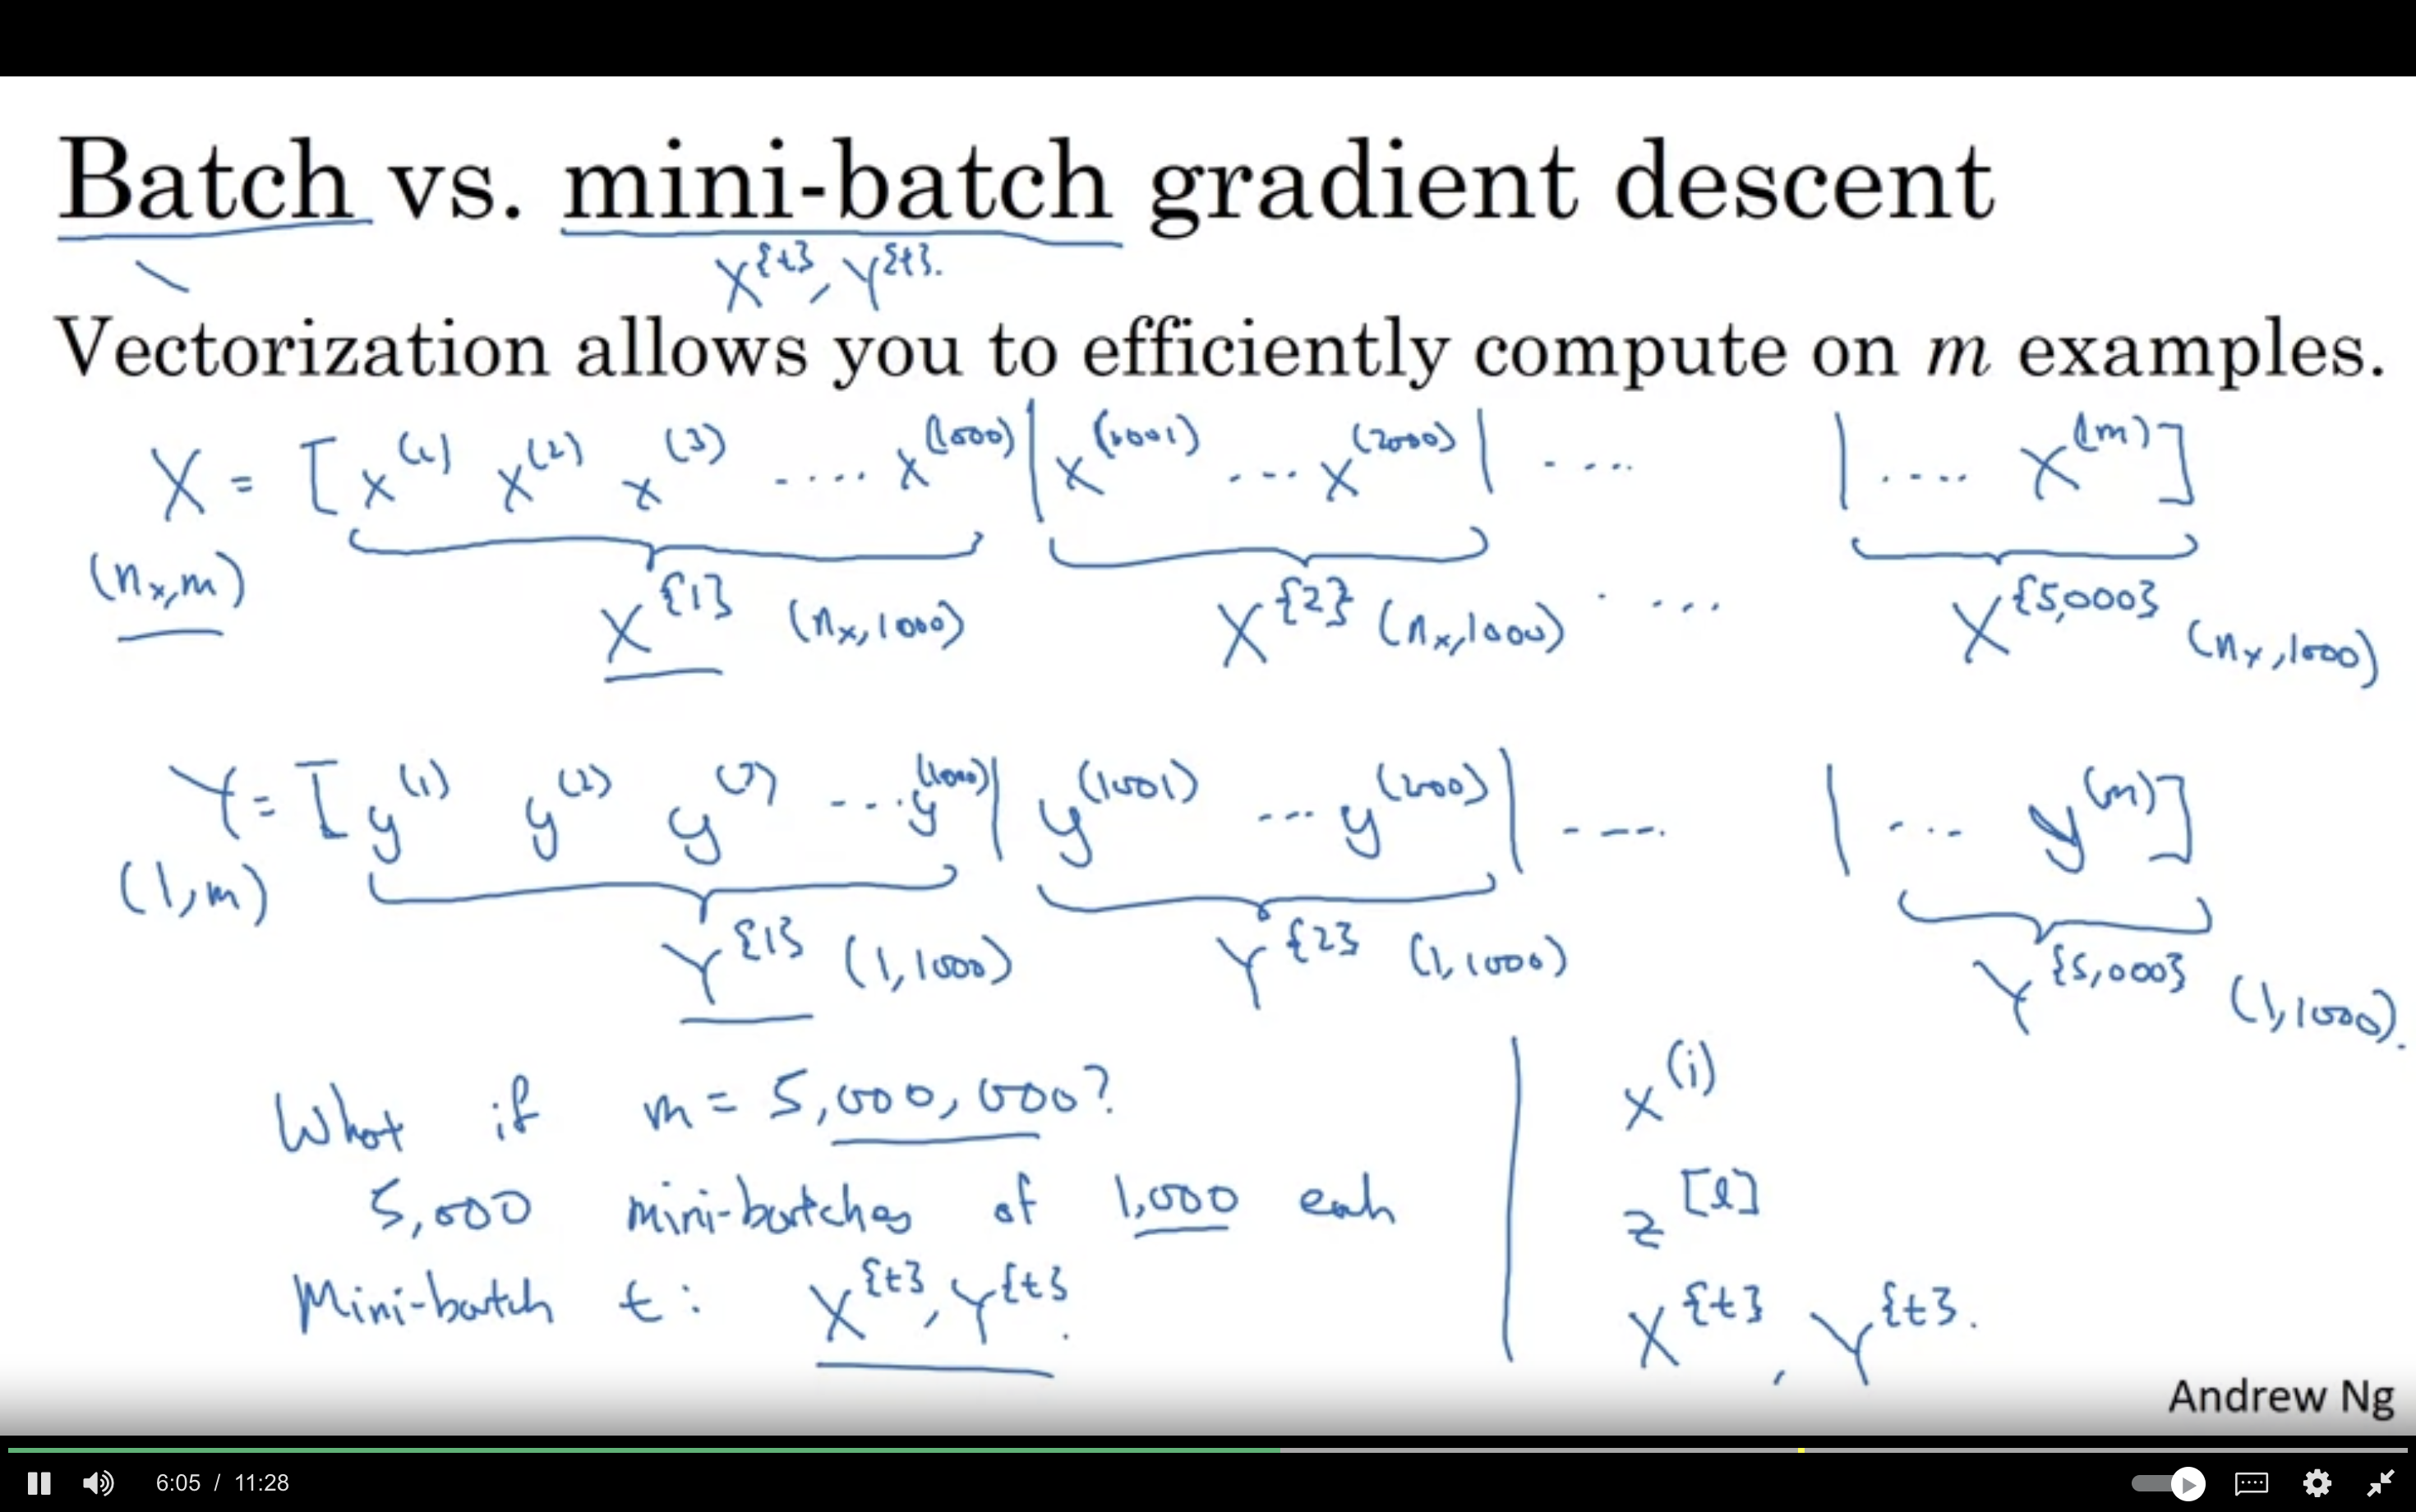 Batch vs. mini-batch gradient descent
X^{t}, Y^{t}.
Vectorization allows you to efficiently compute on m examples.
X = [x^(1) x^(2) x^(3) ..... x^(1000) | x^(1001) ... x^(2000) | ..... | .... x^(m)]
(n_x, m) X^{1} (n_x, 1000) X^{2} (n_x, 1000) .... X^{5,000} (n_x, 1000)
Y = [y^(1) y^(2) y^(3) ... y^(1000) | y^(1001) ... y^(2000) | ---. | ... y^(m)]
(1, m) Y^{1} (1, 1000) Y^{2} (1, 1000) Y^{5,000} (1, 1000).
What if m = 5,000,000?
5,000 mini-batches of 1,000 each
Mini-batch t: X^{t}, Y^{t}.
x^(i)
z^[l]
X^{t}, Y^{t}.
Andrew Ng
6:05 / 11:28